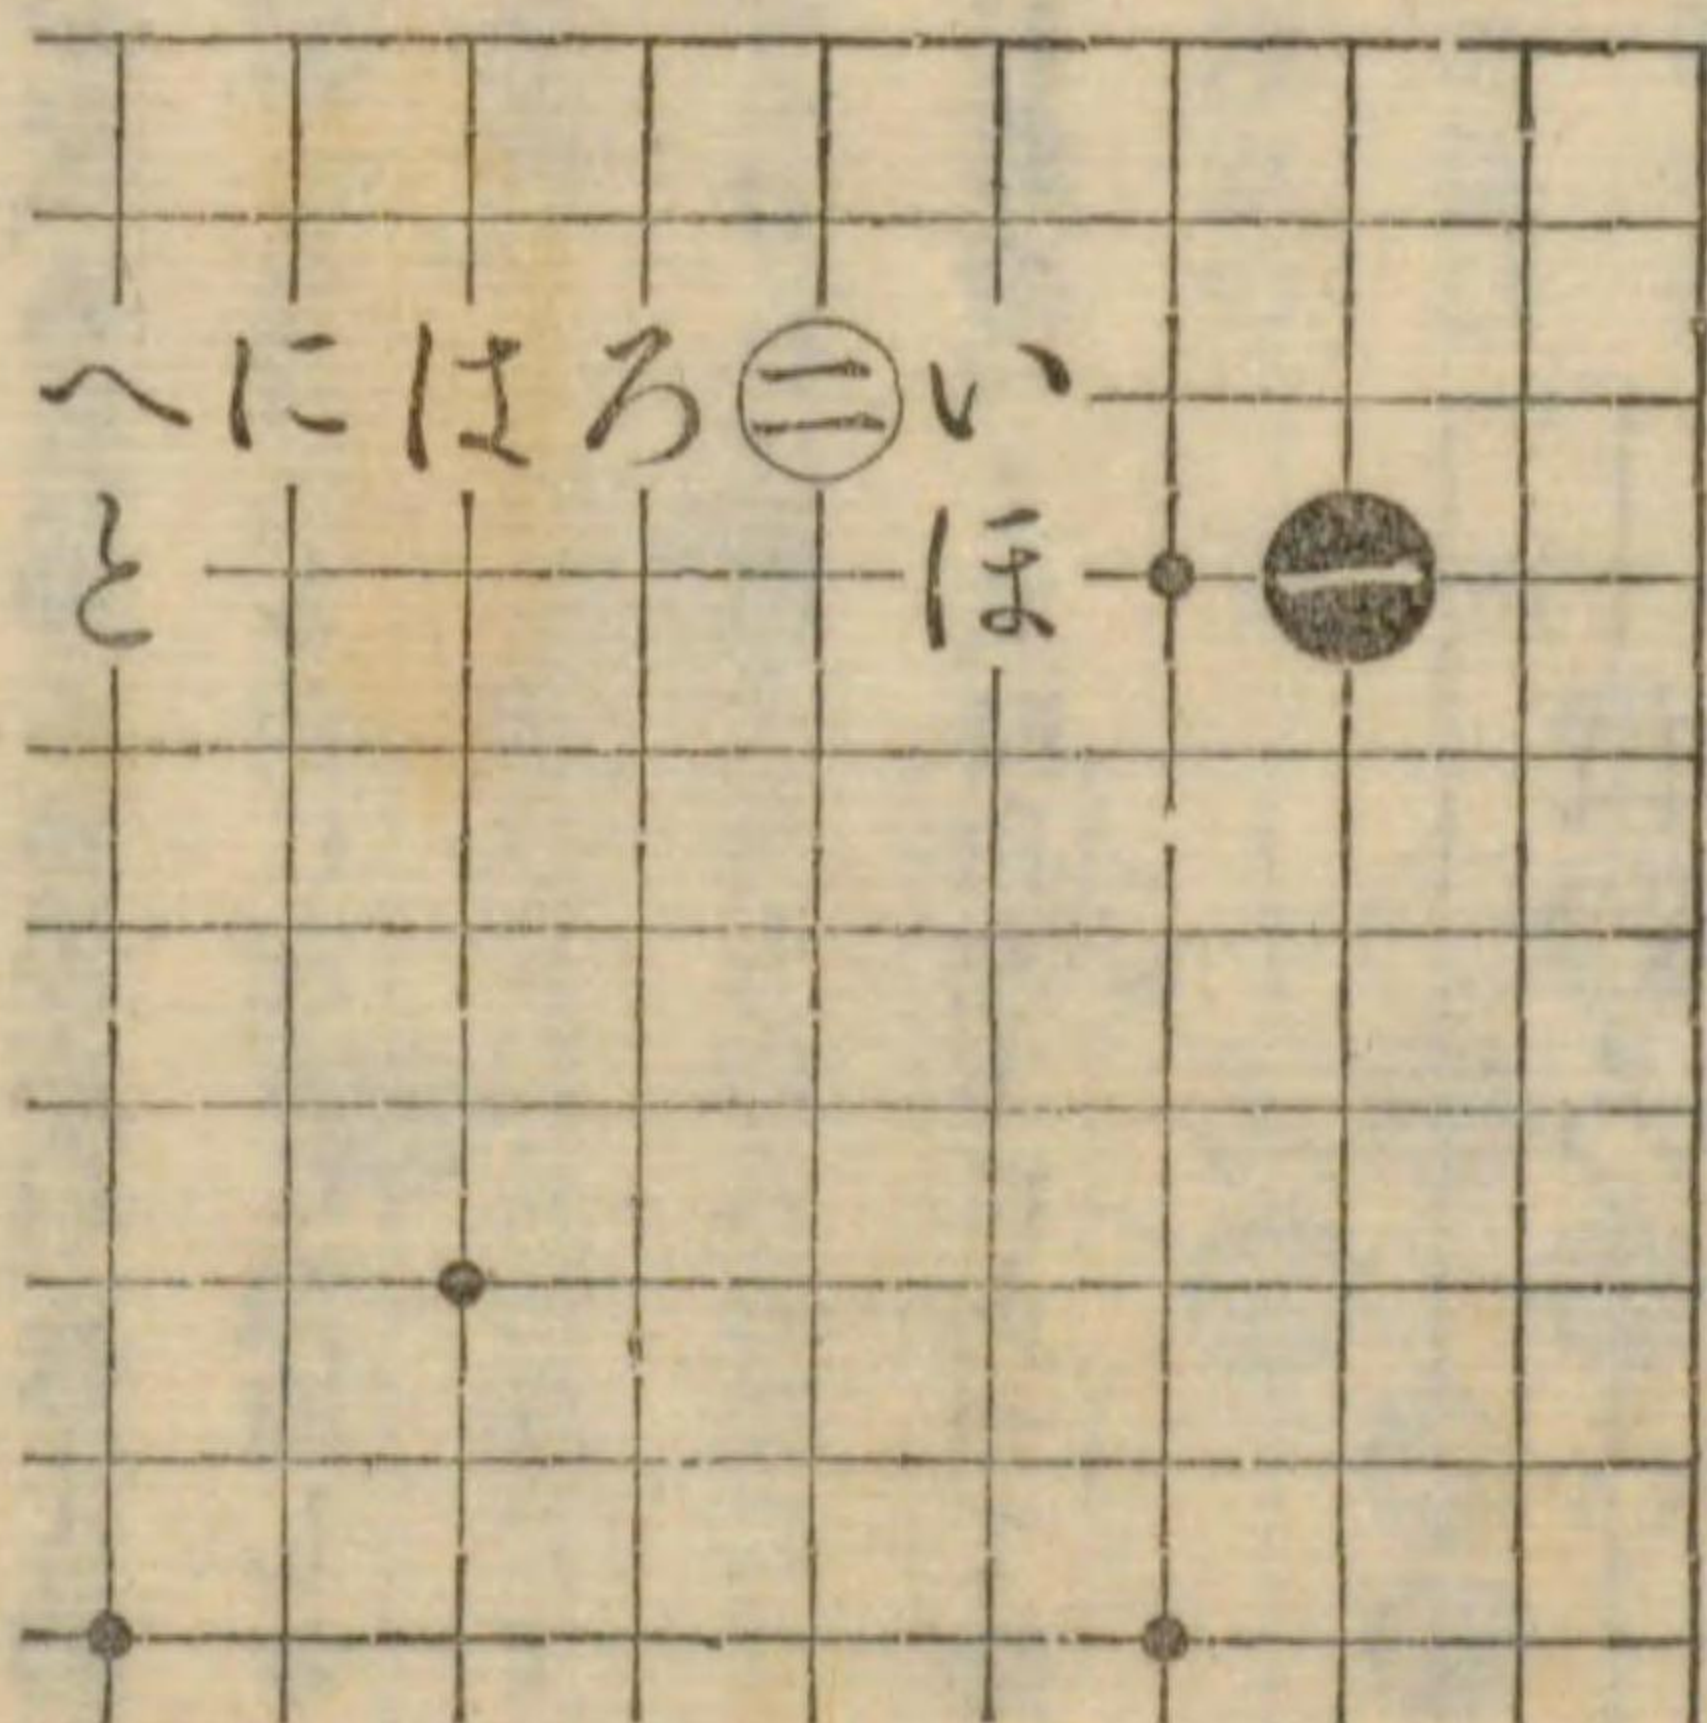 へにはろ二い
とほ一